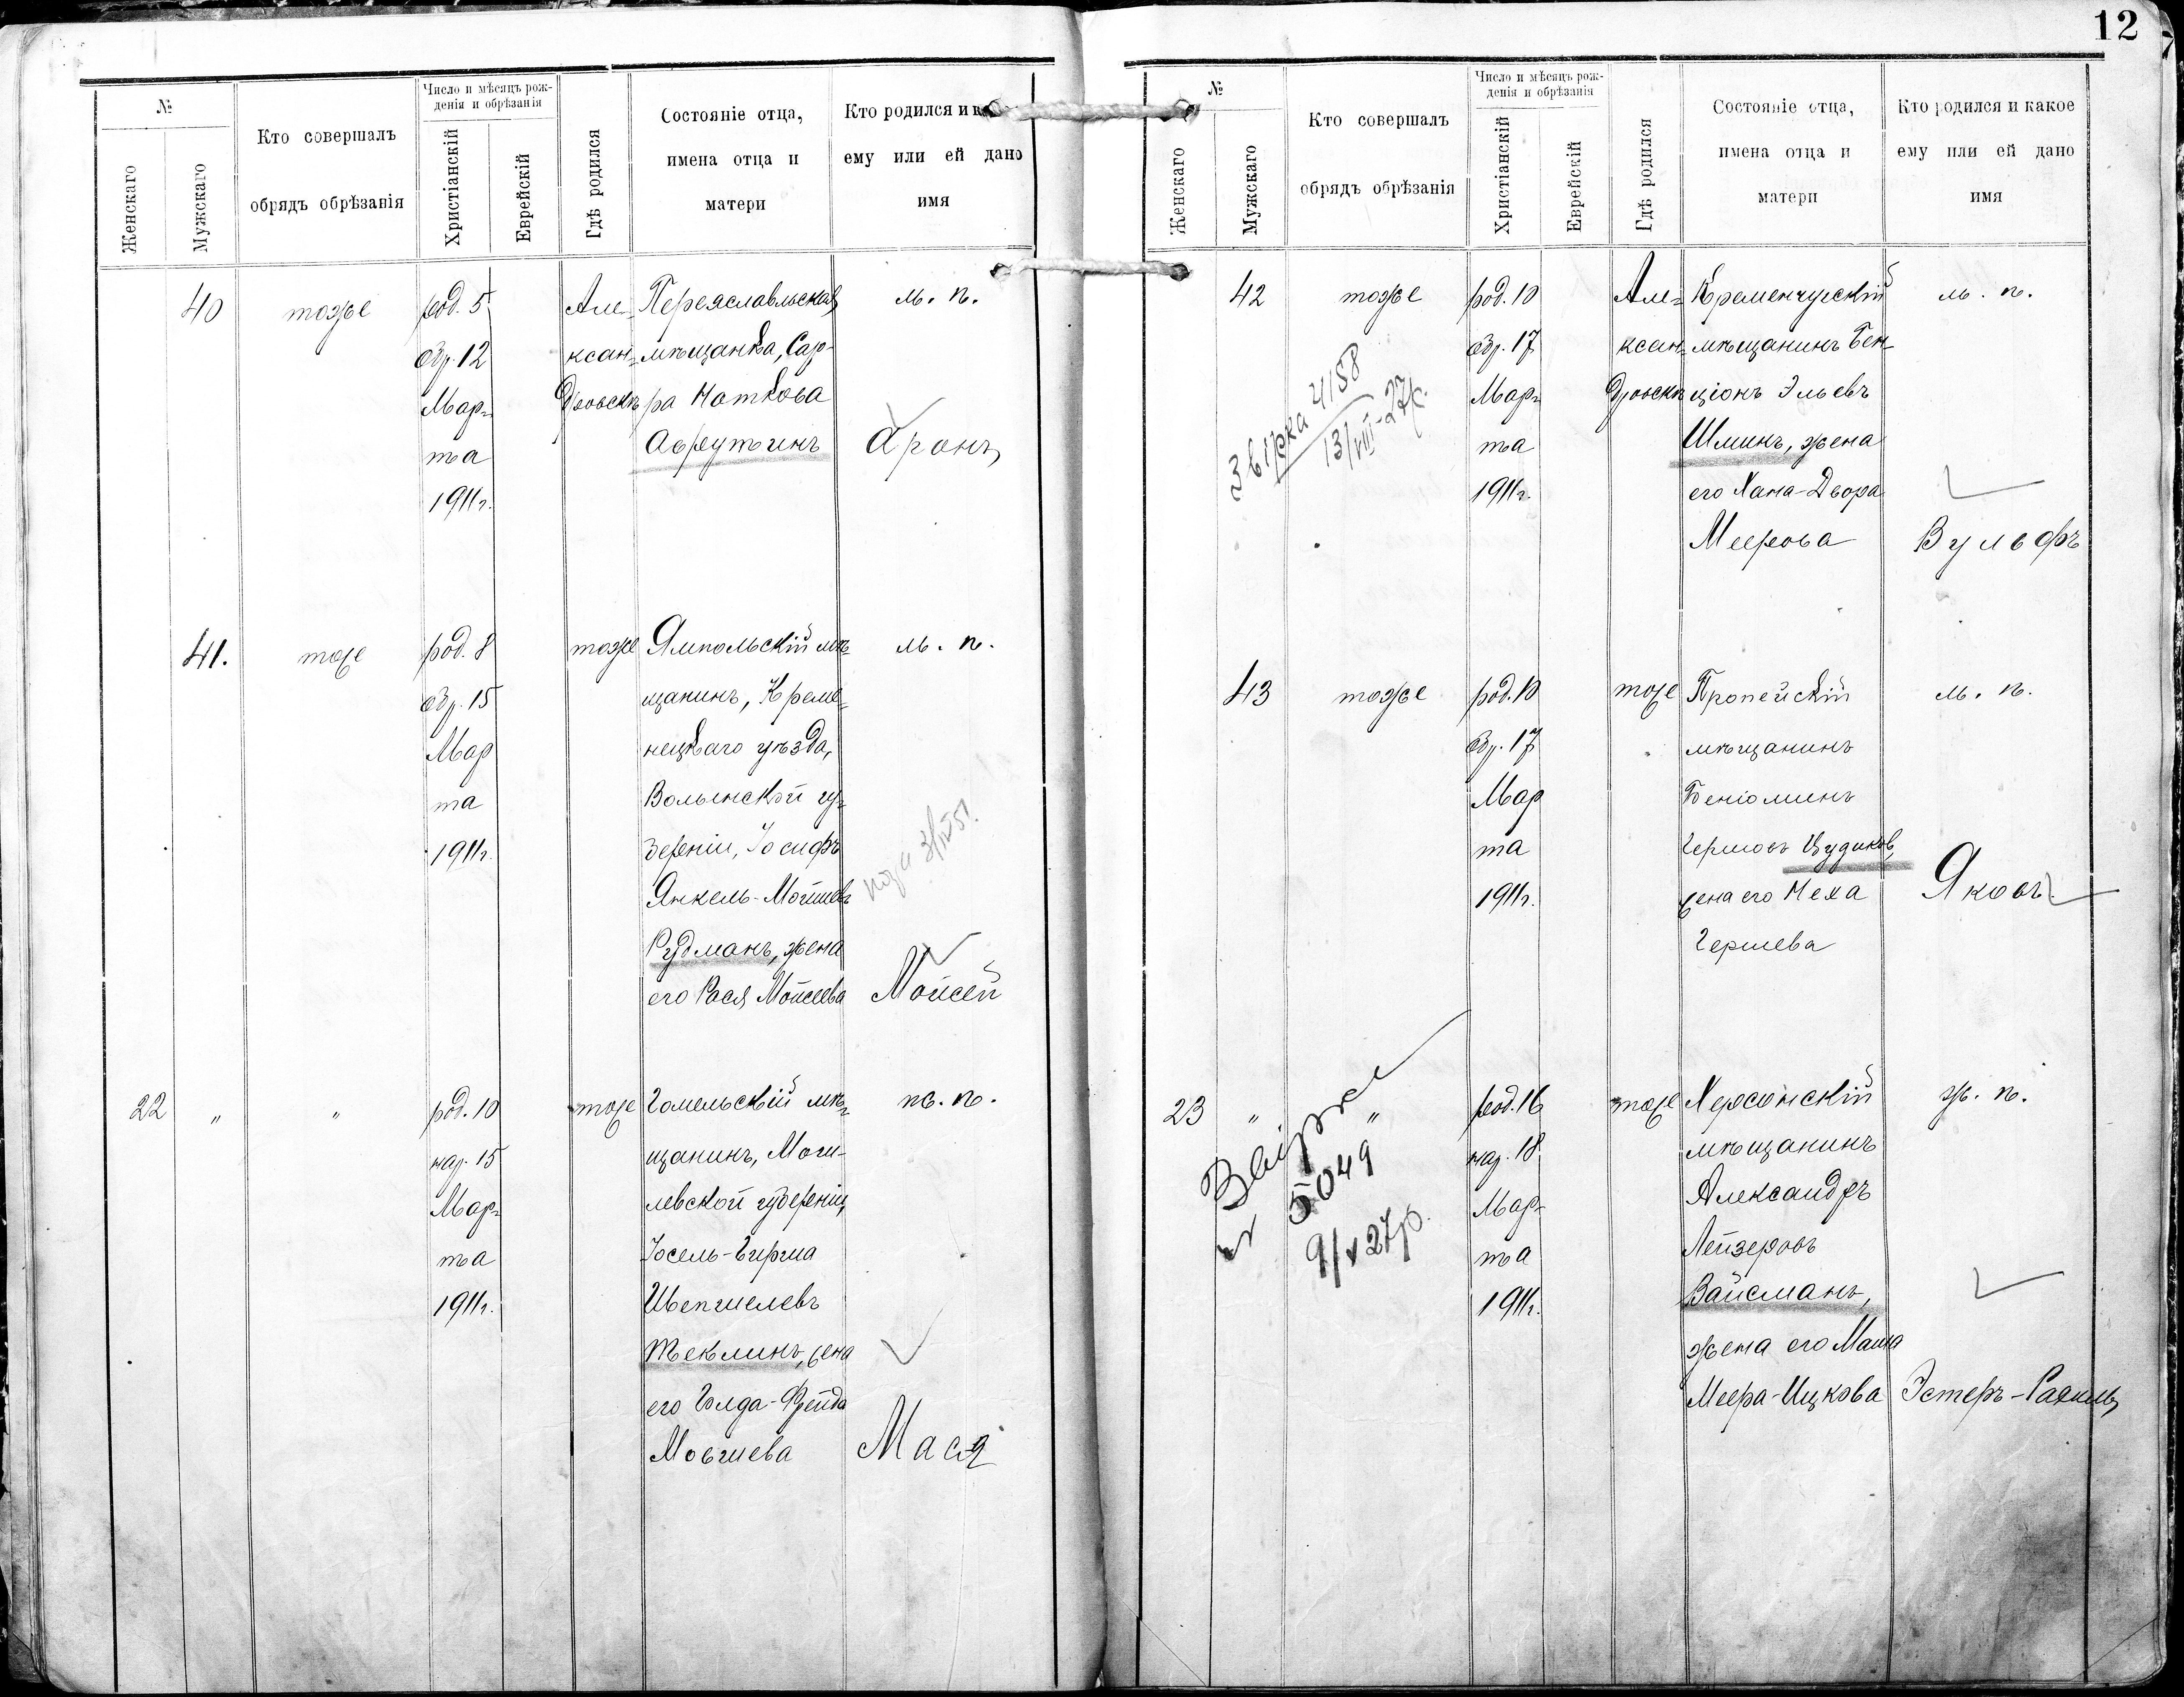 12
№
Женскаго
Мужскаго
Кто совершалъ
обрядъ обрѣзанія
Число и мѣсяцъ рож-
денія и обрѣзанія
Христіанскій
Еврейскій
Гдѣ родился
Состояніе отца,
имена отца и
матери
Кто родился и к
ему или ей дано
имя
40
тоже
род. 5
обр. 12
Мар-
та
1911 г.
Але-
ксан-
дровскѣ
Переяславльская
мѣщанка, Сар-
раНоткова
Аврутинъ
м. п.
Аронъ
41.
тоже
род. 8
обр. 15
Мар
та
1911 г.
тоже
Ямпольскій мѣ-
щанинъ, Креме-
нецкаго уѣзда,
Волынской гу-
берніи, Іосифъ
Янкель-Мошковъ
Рудманъ, жена
его Рася Мойсеева
м. п.
Мойсей
22
"
"
род. 10
нар. 15
Мар-
та
1911 г.
тоже
Гомельскій мѣ-
щанинъ, Моги-
левской губерніи,
Іосель-Гирша
Шепшелевъ
Теклинъ, жена
его Голда-Фрейда
Мовшева
ж. п.
Мася
№
Женскаго
Мужскаго
Кто совершалъ
обрядъ обрѣзанія
Число и мѣсяцъ рож-
денія и обрѣзанія
Христіанскій
Еврейскій
Гдѣ родился
Состояніе отца,
имена отца и
матери
Кто родился и какое
ему или ей дано
имя
42
тоже
род. 10
обр. 17
Мар-
та
1911 г.
Але-
ксан-
дровскѣ
Кременчугскій
мѣщанинъ Бен-
ціонъ Эльевъ
Шминъ, жена
его Хана-Двора
Меерова
м. п.
Вульфъ
Звірка 4158
13/VIII-27р.
43
тоже
род. 10
обр. 17
Мар
та
1911 г.
тоже
Пропейскій
мѣщанинъ
Беніоминъ
Гершовъ Цудиковъ,
жена его Неха
Гершева
м. п.
Яковъ
23
"
"
Звірка
5049
9/V 27р.
род. 16
нар. 18
Мар-
та
1911 г.
тоже
Херсонскій
мѣщанинъ
Александръ
Лейзеровъ
Вайсманъ,
жена его Маша
Меера-Ицкова
ж. п.
Эстеръ-Рахиль